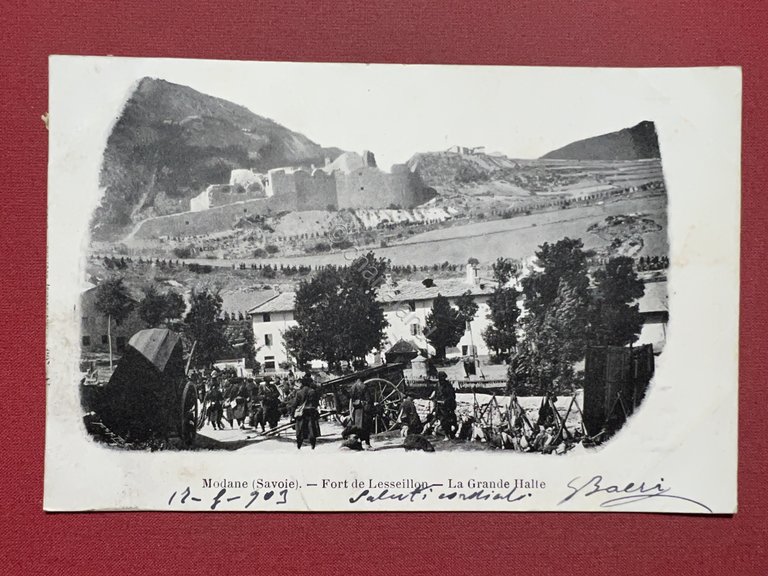 Modane (Savoie). — Fort de Lesseillon — La Grande Halte
Saluti cordiali Baeri